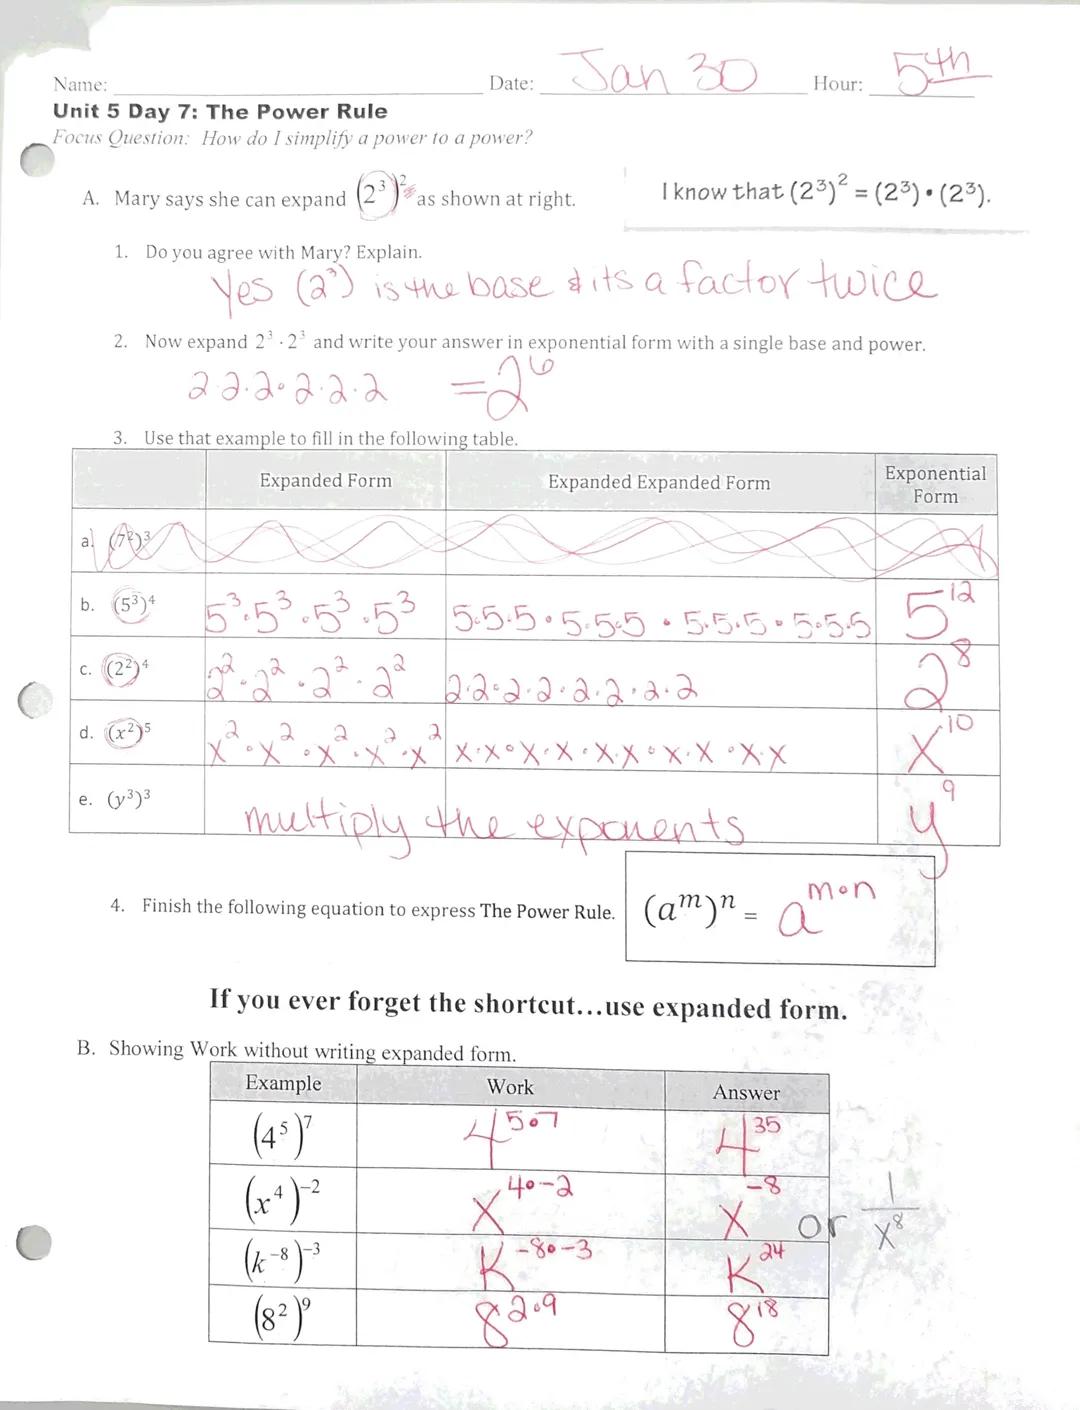 Name: Date: Jan 30 Hour: 5th
Unit 5 Day 7: The Power Rule
Focus Question: How do I simplify a power to a power?
A. Mary says she can expand (2³)² as shown at right.
I know that (2³)² = (2³) • (2³).
1. Do you agree with Mary? Explain.
Yes (2³) is the base & its a factor twice
2. Now expand 2³ · 2³ and write your answer in exponential form with a single base and power.
2·2·2·2·2·2 =2⁶
3. Use that example to fill in the following table.
Expanded Form Expanded Expanded Form Exponential Form
a. (7²)³
b. (5³)⁴ 5³·5³·5³·5³ 5·5·5·5·5·5·5·5·5·5·5·5 5¹²
c. (2²)⁴ 2²·2²·2²·2² 2·2·2·2·2·2·2·2 2⁸
d. (x²)⁵ x²·x²·x²·x²·x² x·x·x·x·x·x·x·x·x·x x¹⁰
e. (y³)³ multiply the exponents y⁹
4. Finish the following equation to express The Power Rule. (aᵐ)ⁿ = aᵐ·ⁿ
If you ever forget the shortcut...use expanded form.
B. Showing Work without writing expanded form.
Example Work Answer
(4⁵)⁷ 4⁵·⁷ 4³⁵
(x⁴)⁻² x⁴·⁻² x⁻⁸ or 1/x⁸
(k⁻⁸)⁻³ K⁻⁸·⁻³ K²⁴
(8²)⁹ 8²·⁹ 8¹⁸